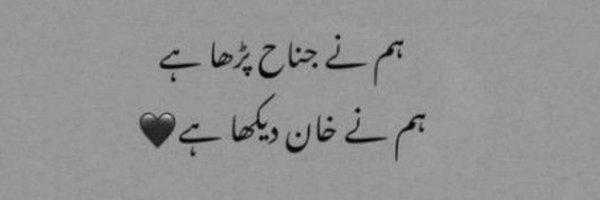 ہم نے جناح پڑھا ہے
ہم نے خان دیکھا ہے🖤